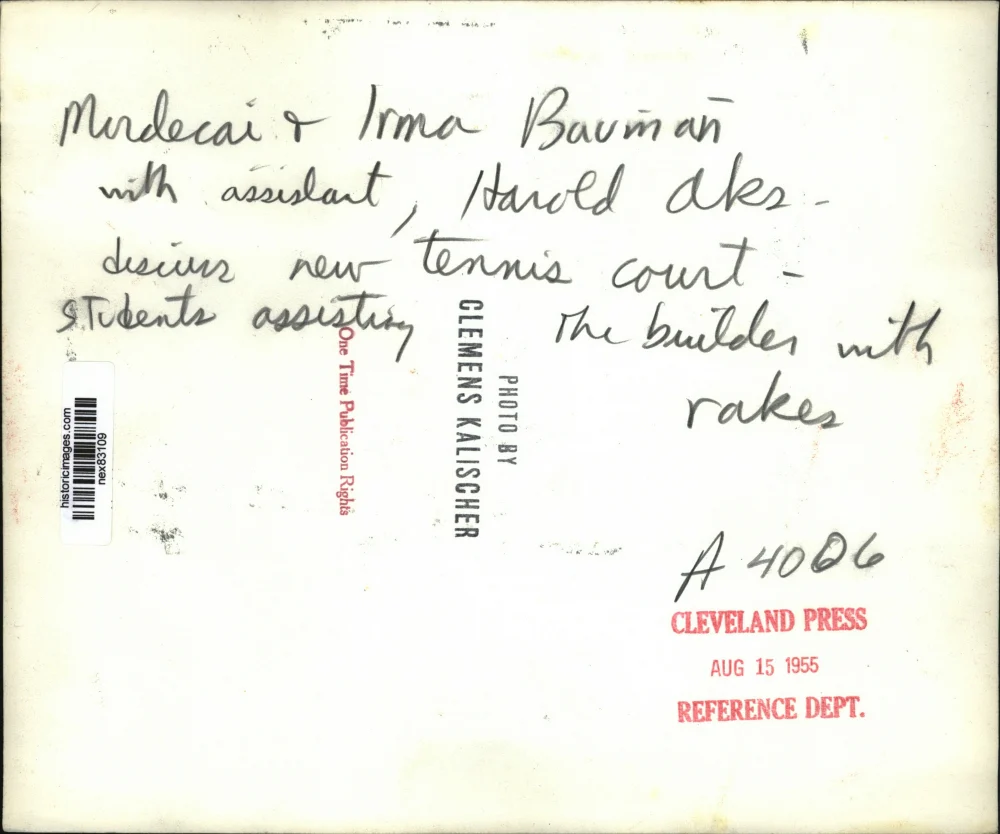 Mordecai & Irma Bauman
with assistant, Harold Aks -
discuss new tennis court -
students assisting the builder with
rakes
historicimages.com
nex83109
One Time Publication Rights
PHOTO BY
CLEMENS KALISCHER
A 4006
CLEVELAND PRESS
AUG 15 1955
REFERENCE DEPT.